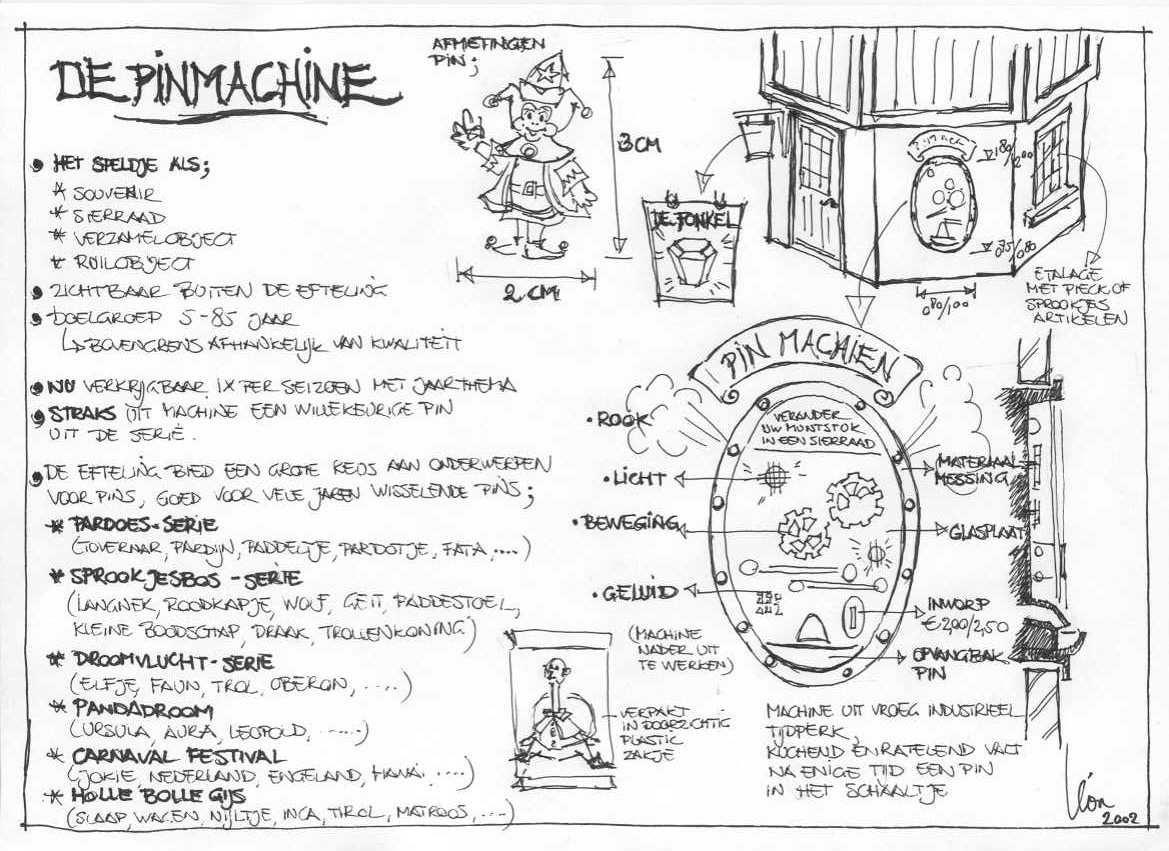 DE PINMACHINE
HET SPELDJE ALS;
* SOUVENIR
* SIERRAAD
* VERZAMELOBJECT
* RUILOBJECT
ZICHTBAAR BUITEN DE EFTELING
DOELGROEP 5-85 JAAR
↳ BOVENGRENS AFHANKELIJK VAN KWALITEIT
NU VERKRIJGBAAR 1X PER SEIZOEN MET JAARTHEMA
STRAKS UIT MACHINE EEN WILLEKEURIGE PIN
UIT DE SERIE.
DE EFTELING BIED EEN GROTE KEUS AAN ONDERWERPEN
VOOR PINS, GOED VOOR VELE JAREN WISSELENDE PINS;
* PARDOES-SERIE
(TOVERNAR, PARDIJN, PADDELTJE, PARDOTJE, FATA ....)
* SPROOKJESBOS-SERIE
(LANGNEK, ROODKAPJE, WOLF, GEIT, PADDESTOEL,
KLEINE BOODSCHAP, DRAAK, TROLLENKONING)
* DROOMVLUCHT-SERIE
(ELFJE, FAUN, TROL, OBERON, .....)
* PANDADROOM
(URSULA, AURA, LEOPOLD, .....)
* CARNAVAL FESTIVAL
(JOKIE, NEDERLAND, ENGELAND, HAWAI, ....)
* HOLLE BOLLE GIJS
(SLAAP, WAGEN, NIJLTJE, INCA, TIROL, MATROOS, ....)
AFMETINGEN
PIN;
3 CM
2 CM
DE FONKEL
180/200
075/080
080/100
ETALAGE
MET PIECK OF
SPROOKJES
ARTIKELEN
PIN MACHIEN
VERANDER
UW MUNTSTUK
IN EEN SIERRAAD
• ROOK
• LICHT
• BEWEGING
• GELUID
MATERIAAL
MESSING
GLASPLAAT
INWORP
€ 2,00/2,50
OPVANGBAK
PIN
(MACHINE
NADER UIT
TE WERKEN)
VERPAKT
IN DOORZICHTIG
PLASTIC
ZAKJE
MACHINE UIT VROEG INDUSTRIEEL
TIJDPERK,
KUCHEND EN RATELEND VALT
NA ENIGE TIJD EEN PIN
IN HET SCHAALTJE
2002